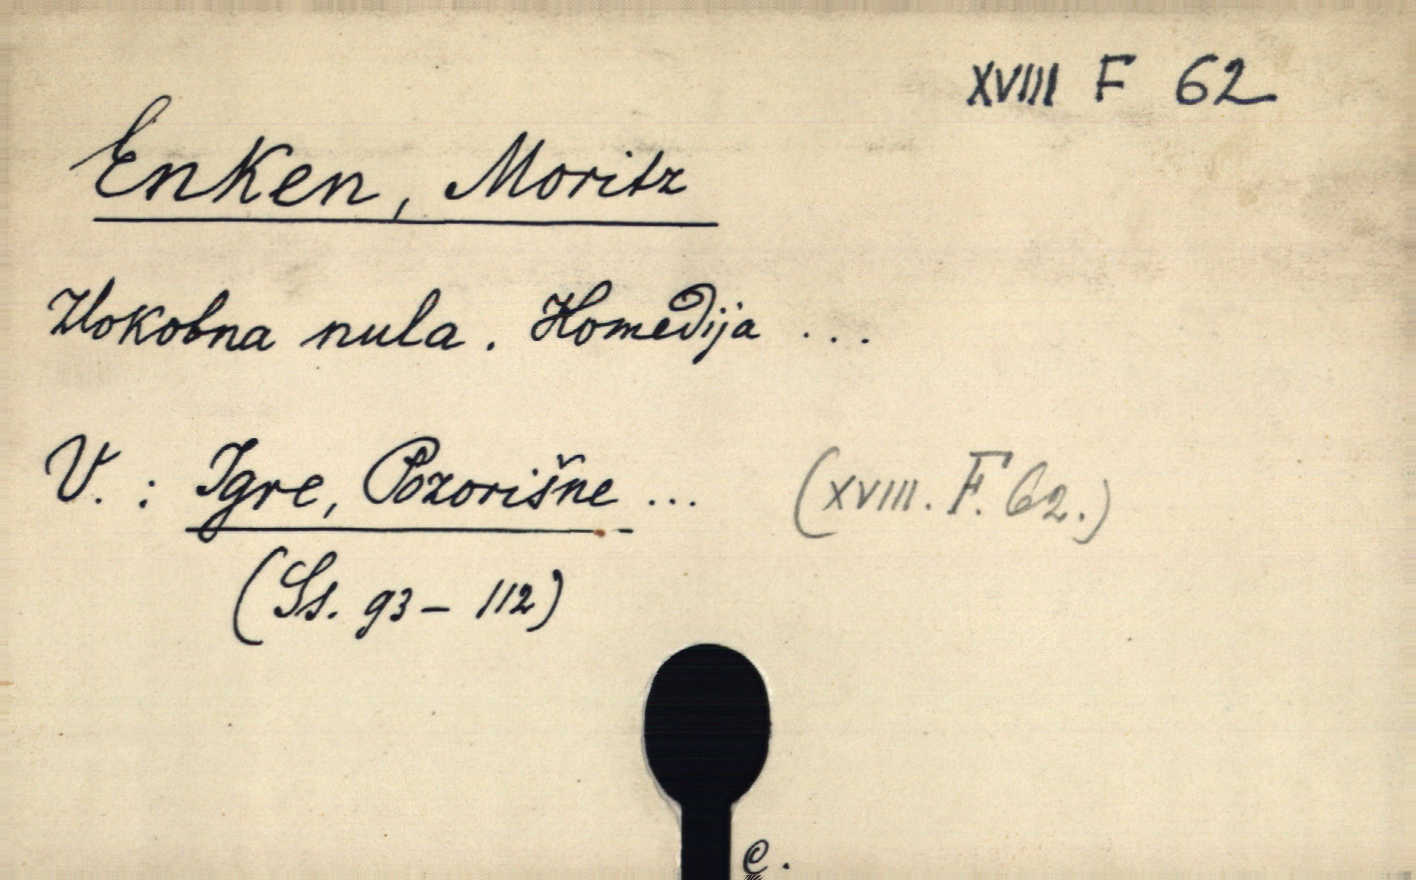 XVIII F 62
Enken, Moritz
Zlokobna nula. Komedija ...
V. : Igre, Pozorišne ... (XVIII. F. 62.)
(Ss. 93 - 112)
e.